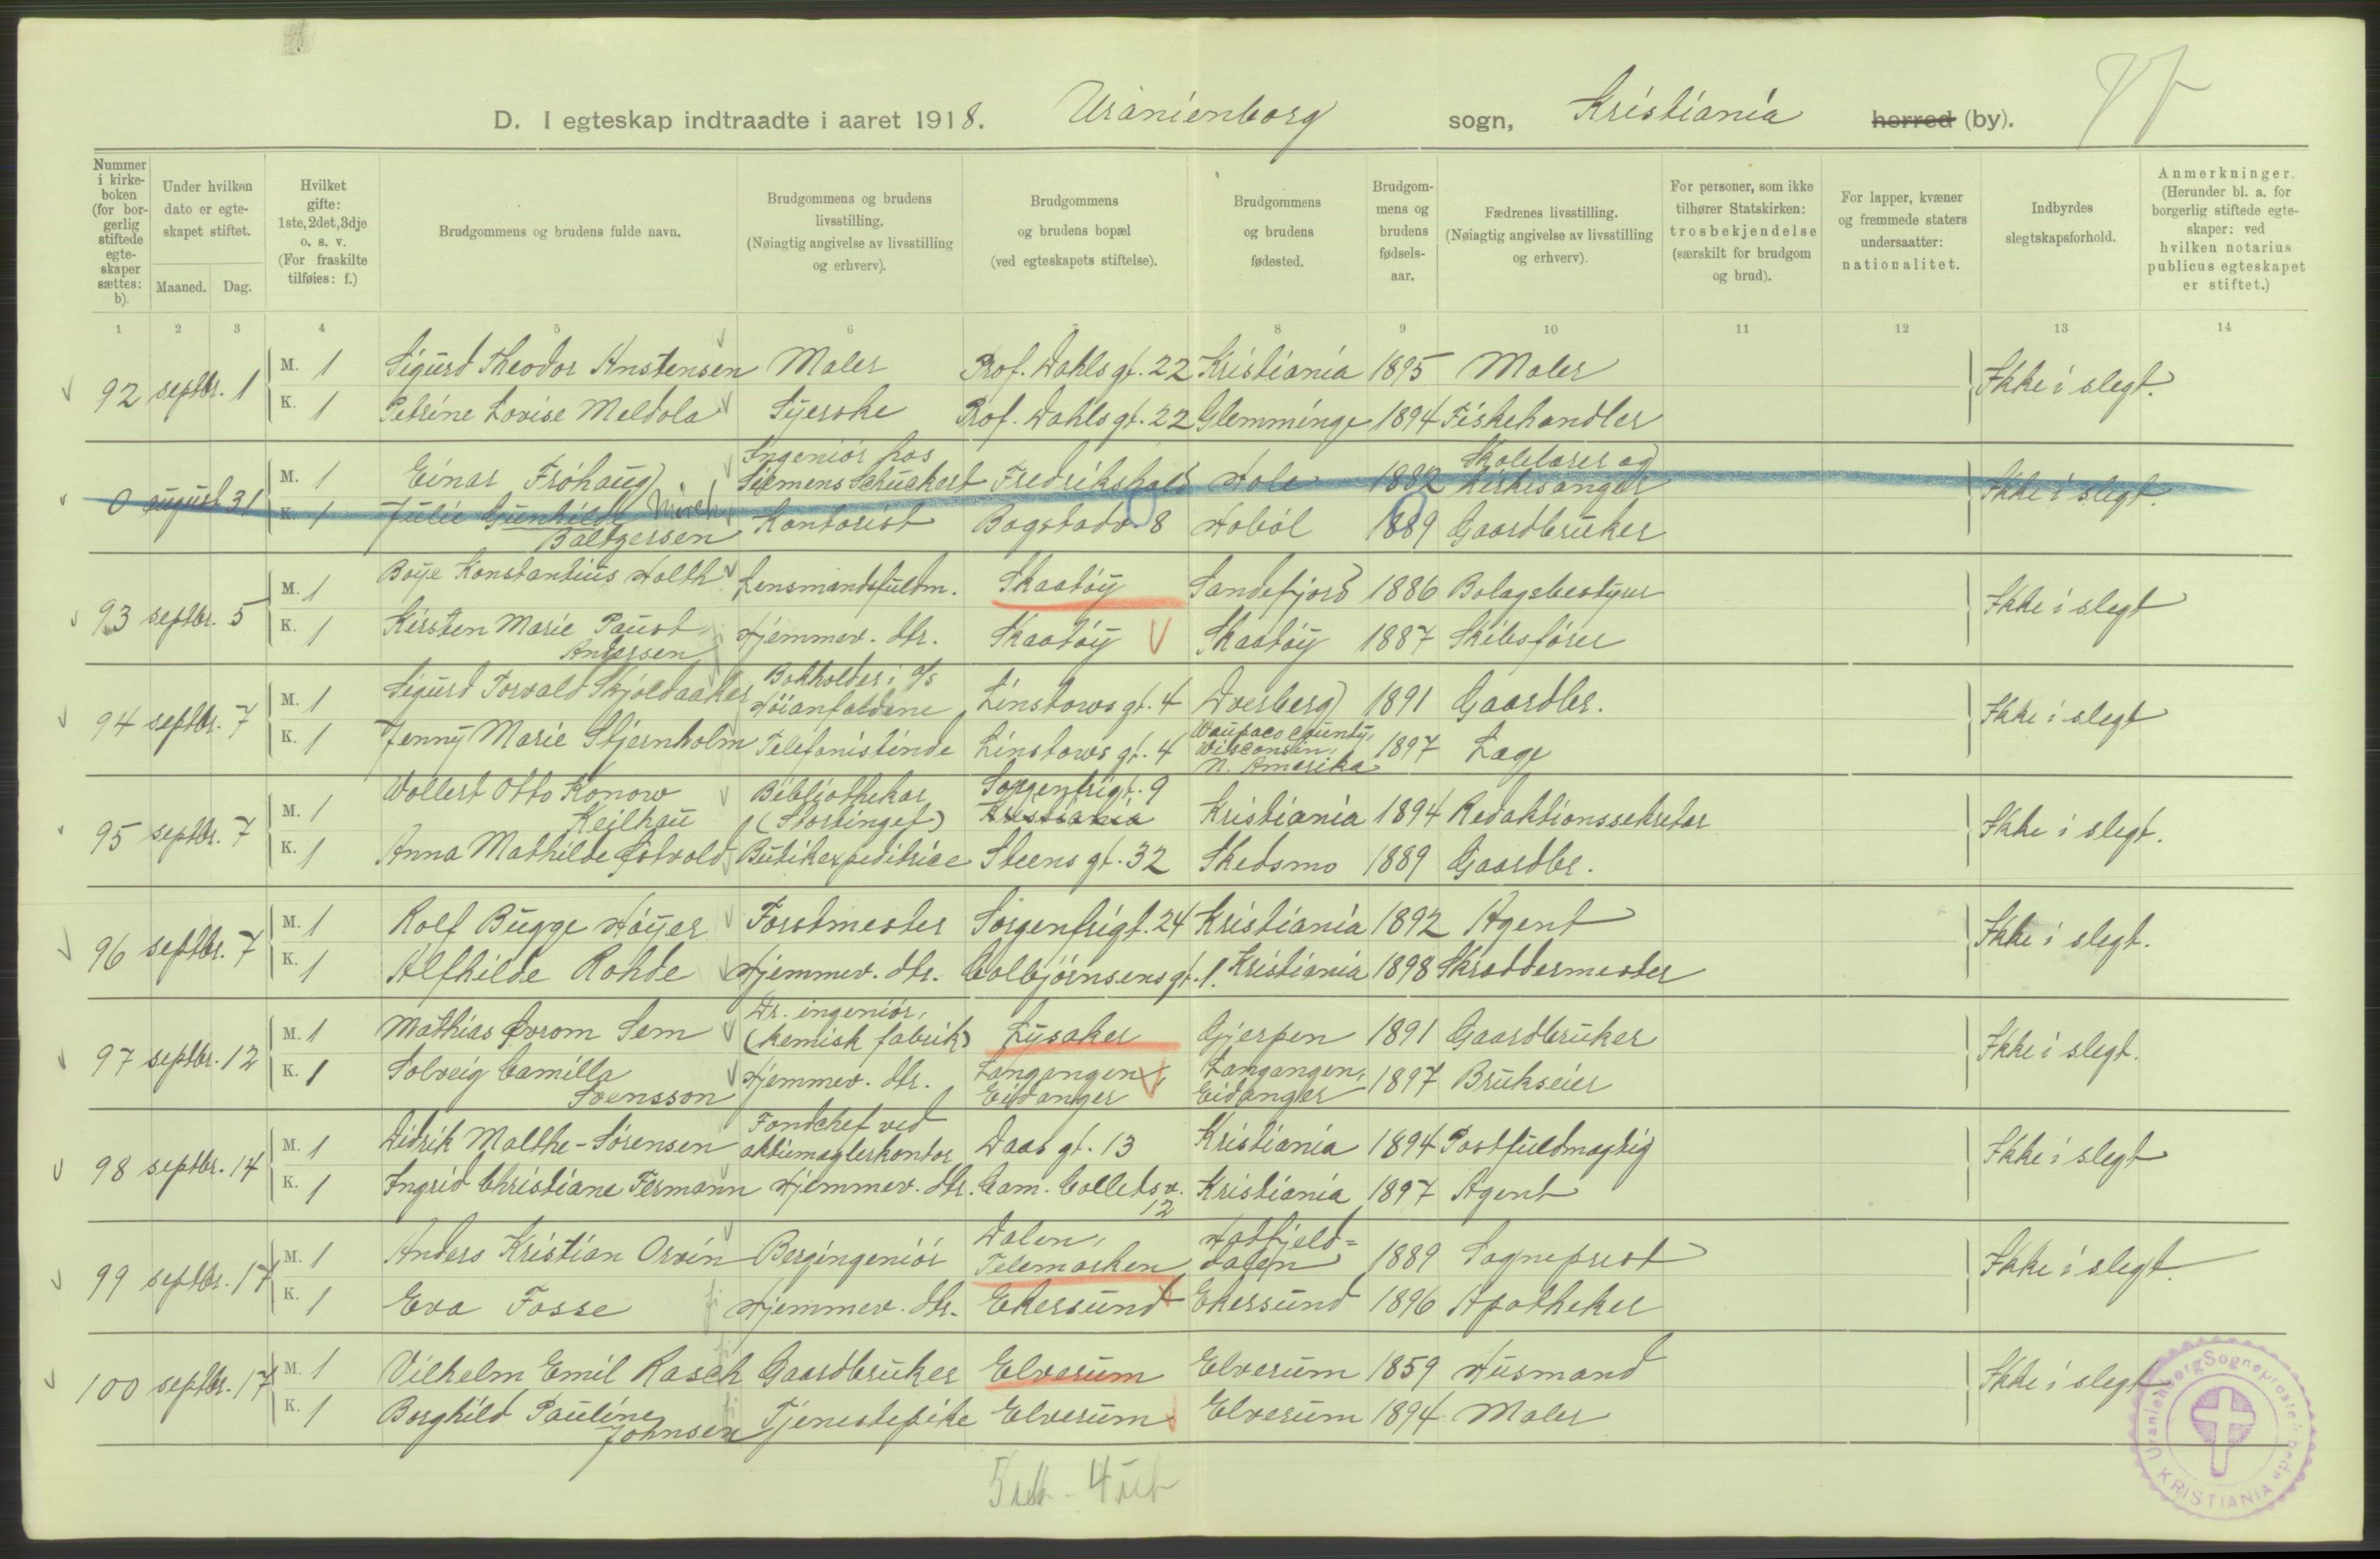 D. I egteskap indtraadte i aaret 1918. Uranienborg sogn, Kristiania herred (by).
Nummer i kirkeboken (for borgerlig stiftede egteskaper sættes: b).
Under hvilken dato er egteskapet stiftet.
Maaned. Dag.
Hvilket gifte: 1ste, 2det, 3dje o. s. v. (For fraskilte tilføies: f.)
Brudgommens og brudens fulde navn.
Brudgommens og brudens livsstilling. (Nøiagtig angivelse av livsstilling og erhverv).
Brudgommens og brudens bopæl (ved egteskapets stiftelse).
Brudgommens og brudens fødested.
Brudgommens og brudens fødselsaar.
Fædrenes livsstilling. (Nøiagtig angivelse av livsstilling og erhverv).
For personer, som ikke tilhører Statskirken: trosbekjendelse (særskilt for brudgom og brud).
For lapper, kvæner og fremmede staters undersaatter: nationalitet.
Indbyrdes slegtskapsforhold.
Anmerkninger. (Herunder bl. a. for borgerlig stiftede egteskaper: ved hvilken notarius publicus egteskapet er stiftet.)
1 2 3 4 5 6 7 8 9 10 11 12 13 14
92 septbr. 1 M. 1 Sigurd Theodor Anstensen Maler Prof. Dahls gt. 22 Kristiania 1895 Maler Ikke i slegt.
K. 1 Petrine Lovise Meldola Syerske Prof. Dahls gt. 22 Glemminge 1894 Fiskehandler
0 august 31 M. 1 Einar Fröhaug Ingeniör hos Siemens Schuckert Fredrikshald Hole 1882 Skolelærer og kirkesanger Ikke i slegt.
K. 1 Julie Gunhilde Mörch Baltzersen Kontorist Bogstadv. 8 Hoböl 1889 Gaardbruker
93 septbr. 5 M. 1 Boye Konstantius Holth Lensmandsfuldm. Skaatöy Sandefjord 1886 Bolagsbestyrer Ikke i slegt
K. 1 Kirsten Marie Paust Andersen Hjemmev. dtr. Skaatöy Skaatöy 1887 Skibsförer
94 septbr. 7 M. 1 Sigurd Torvald Skjoldaaker Bokholder i A/S Höianfaldene Linstows gt. 4 Dverberg 1891 Gaardbr. Ikke i slegt
K. 1 Jenny Marie Stjernholm Telefonistinde Linstows gt. 4 Waupaca county, Wisconsin, N. Amerika 1897 Læge
95 septbr. 7 M. 1 Wollert Otto Konow Keilhau Bibliothekar (Stortinget) Sorgenfrigt. 9 Kristiania Kristiania 1894 Redaktionssekretær Ikke i slegt.
K. 1 Anna Mathilde Östvold Butikexpeditrice Steens gt. 32 Skedsmo 1889 Gaardbr.
96 septbr. 7 M. 1 Rolf Bugge Höyer Forstmester Sorgenfrigt. 24 Kristiania 1892 Agent Ikke i slegt.
K. 1 Alfhilde Rohde Hjemmev. dtr. Colbjörnsens gt. 1. Kristiania 1898 Skræddermester
97 septbr. 12 M. 1 Mathias Övrom Sem Dr. ingeniör, (kemisk fabrik) Lysaker Gjerpen 1891 Gaardbruker Ikke i slegt.
K. 1 Solveig Camilla Svensson Hjemmev. dtr. Langangen, Eidanger Langangen, Eidanger 1897 Brukseier
98 septbr. 14 M. 1 Didrik Malthe-Sörensen Fondchef ved aktiemæglerkontor Daas gt. 13 Kristiania 1894 Postfuldmægtig Ikke i slegt
K. 1 Ingrid Christiane Fermann Hjemmev. dtr. Cam. Colletsv. 12 Kristiania 1897 Agent
99 septbr. 17 M. 1 Anders Kristian Orvin Bergingeniör Dalen, Telemarken Hatfjelddalen 1889 Sogneprest Ikke i slegt.
K. 1 Eva Fosse Hjemmev. dtr. Ekersund Ekersund 1896 Apotheker
100 septbr. 17 M. 1 Vilhelm Emil Rasch Gaardbruker Elverum Elverum 1859 Husmand Ikke i slegt
K. 1 Borghild Pauline Johnsen Tjenestepike Elverum Elverum 1894 Maler
Uranienborg Sogneprestembede KRISTIANIA